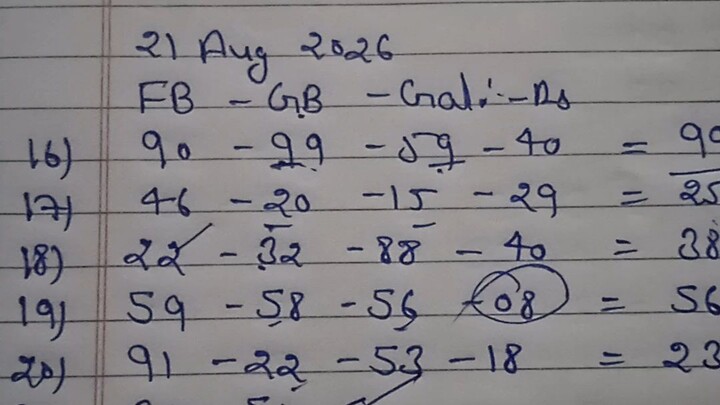 21 Aug 2026
FB - GB - Gali - Ds
16) 90 - 99 - 59 - 40 = 90
17) 46 - 20 - 15 - 29 = 25
18) 22 - 32 - 88 - 40 = 38
19) 59 - 58 - 56 - 08 = 56
20) 91 - 22 - 53 - 18 = 23